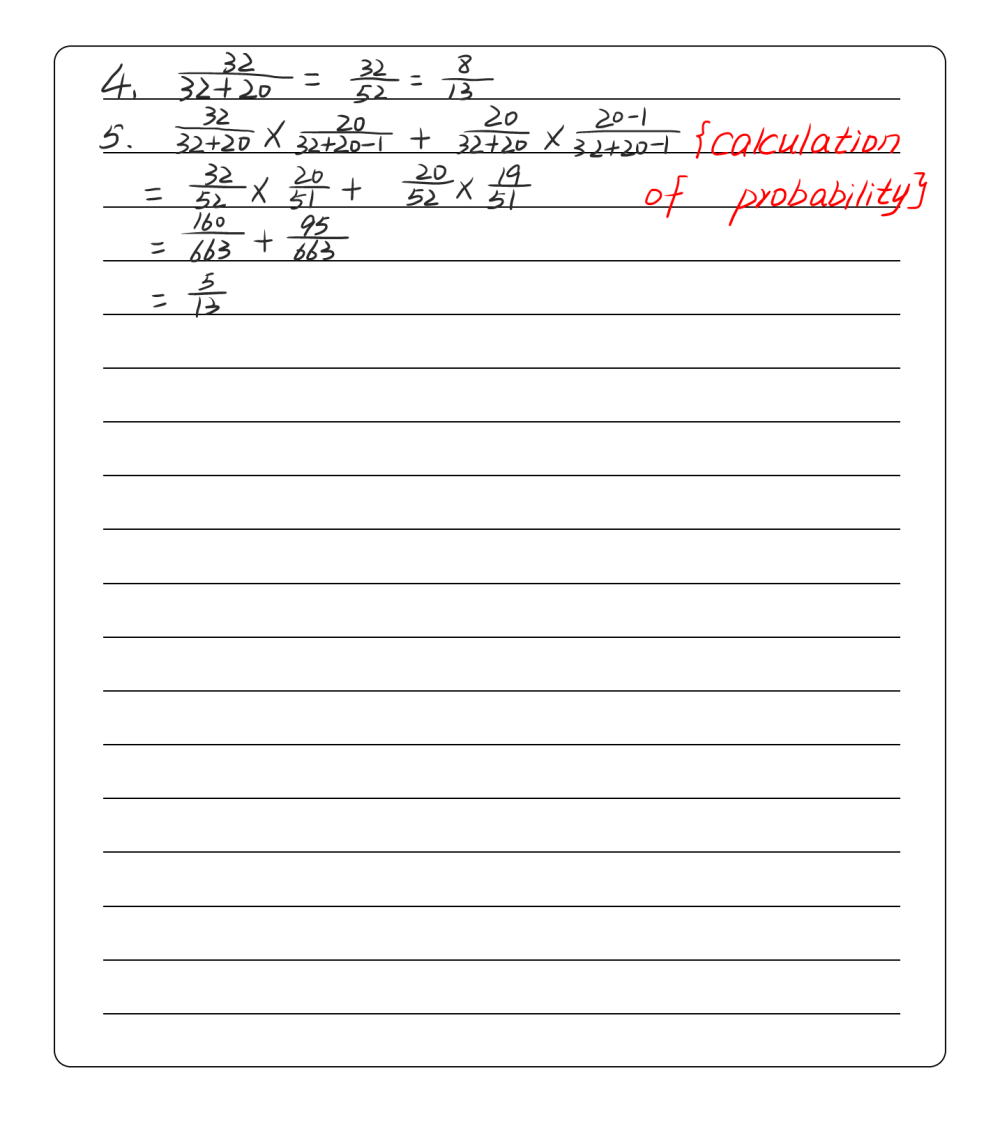 4. \frac{32}{32+20} = \frac{32}{52} = \frac{8}{13}
5. \frac{32}{32+20} × \frac{20}{32+20-1} + \frac{20}{32+20} × \frac{20-1}{32+20-1} {calculation
= \frac{32}{52} × \frac{20}{51} + \frac{20}{52} × \frac{19}{51} of probability}
= \frac{160}{663} + \frac{95}{663}
= \frac{5}{13}